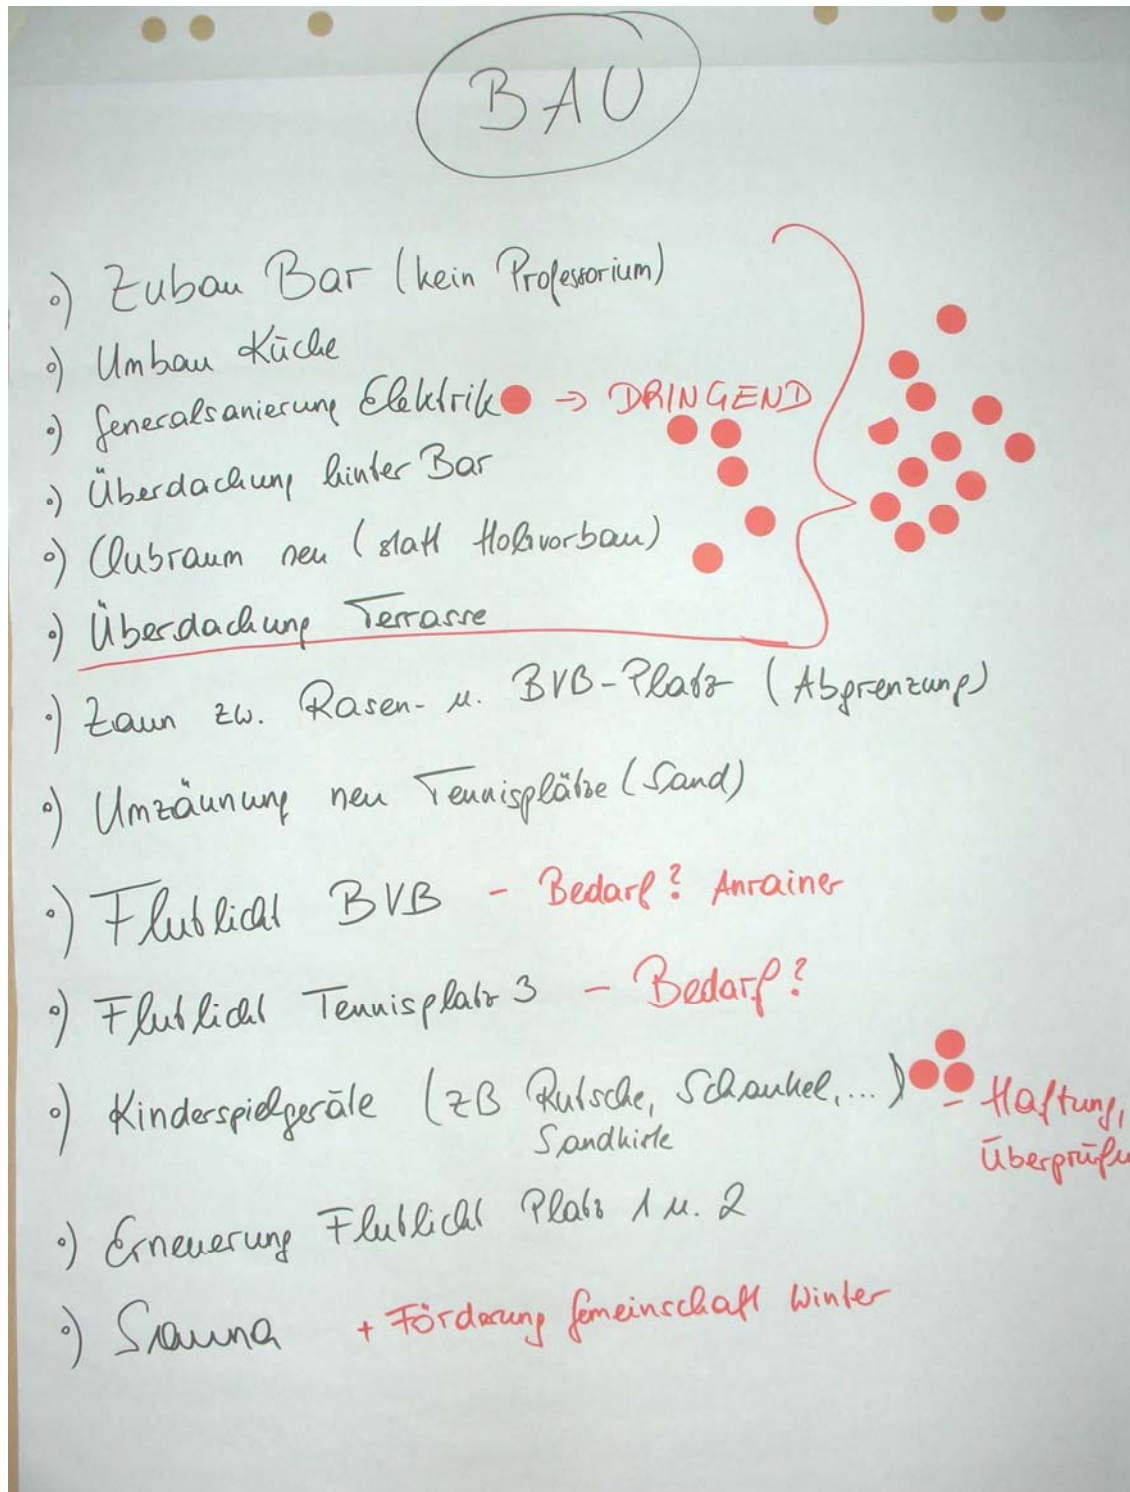 BAU
°) Zubau Bar (kein Professorium)
°) Umbau Küche
°) Generalsanierung Elektrik → DRINGEND
°) Überdachung hinter Bar
°) Clubraum neu (statt Holzvorbau)
°) Überdachung Terrasse
°) Zaun zw. Rasen- u. BVB-Platz (Abgrenzung)
°) Umzäunung neu Tennisplätze (Sand)
°) Flutlicht BVB - Bedarf? Anrainer
°) Flutlicht Tennisplatz 3 - Bedarf?
°) Kinderspielgeräte (zB Rutsche, Schaukel,...) - Haftung,
Sandkiste Überprüfu
°) Erneuerung Flutlicht Platz 1 u. 2
°) Sauna + Förderung Gemeinschaft Winter